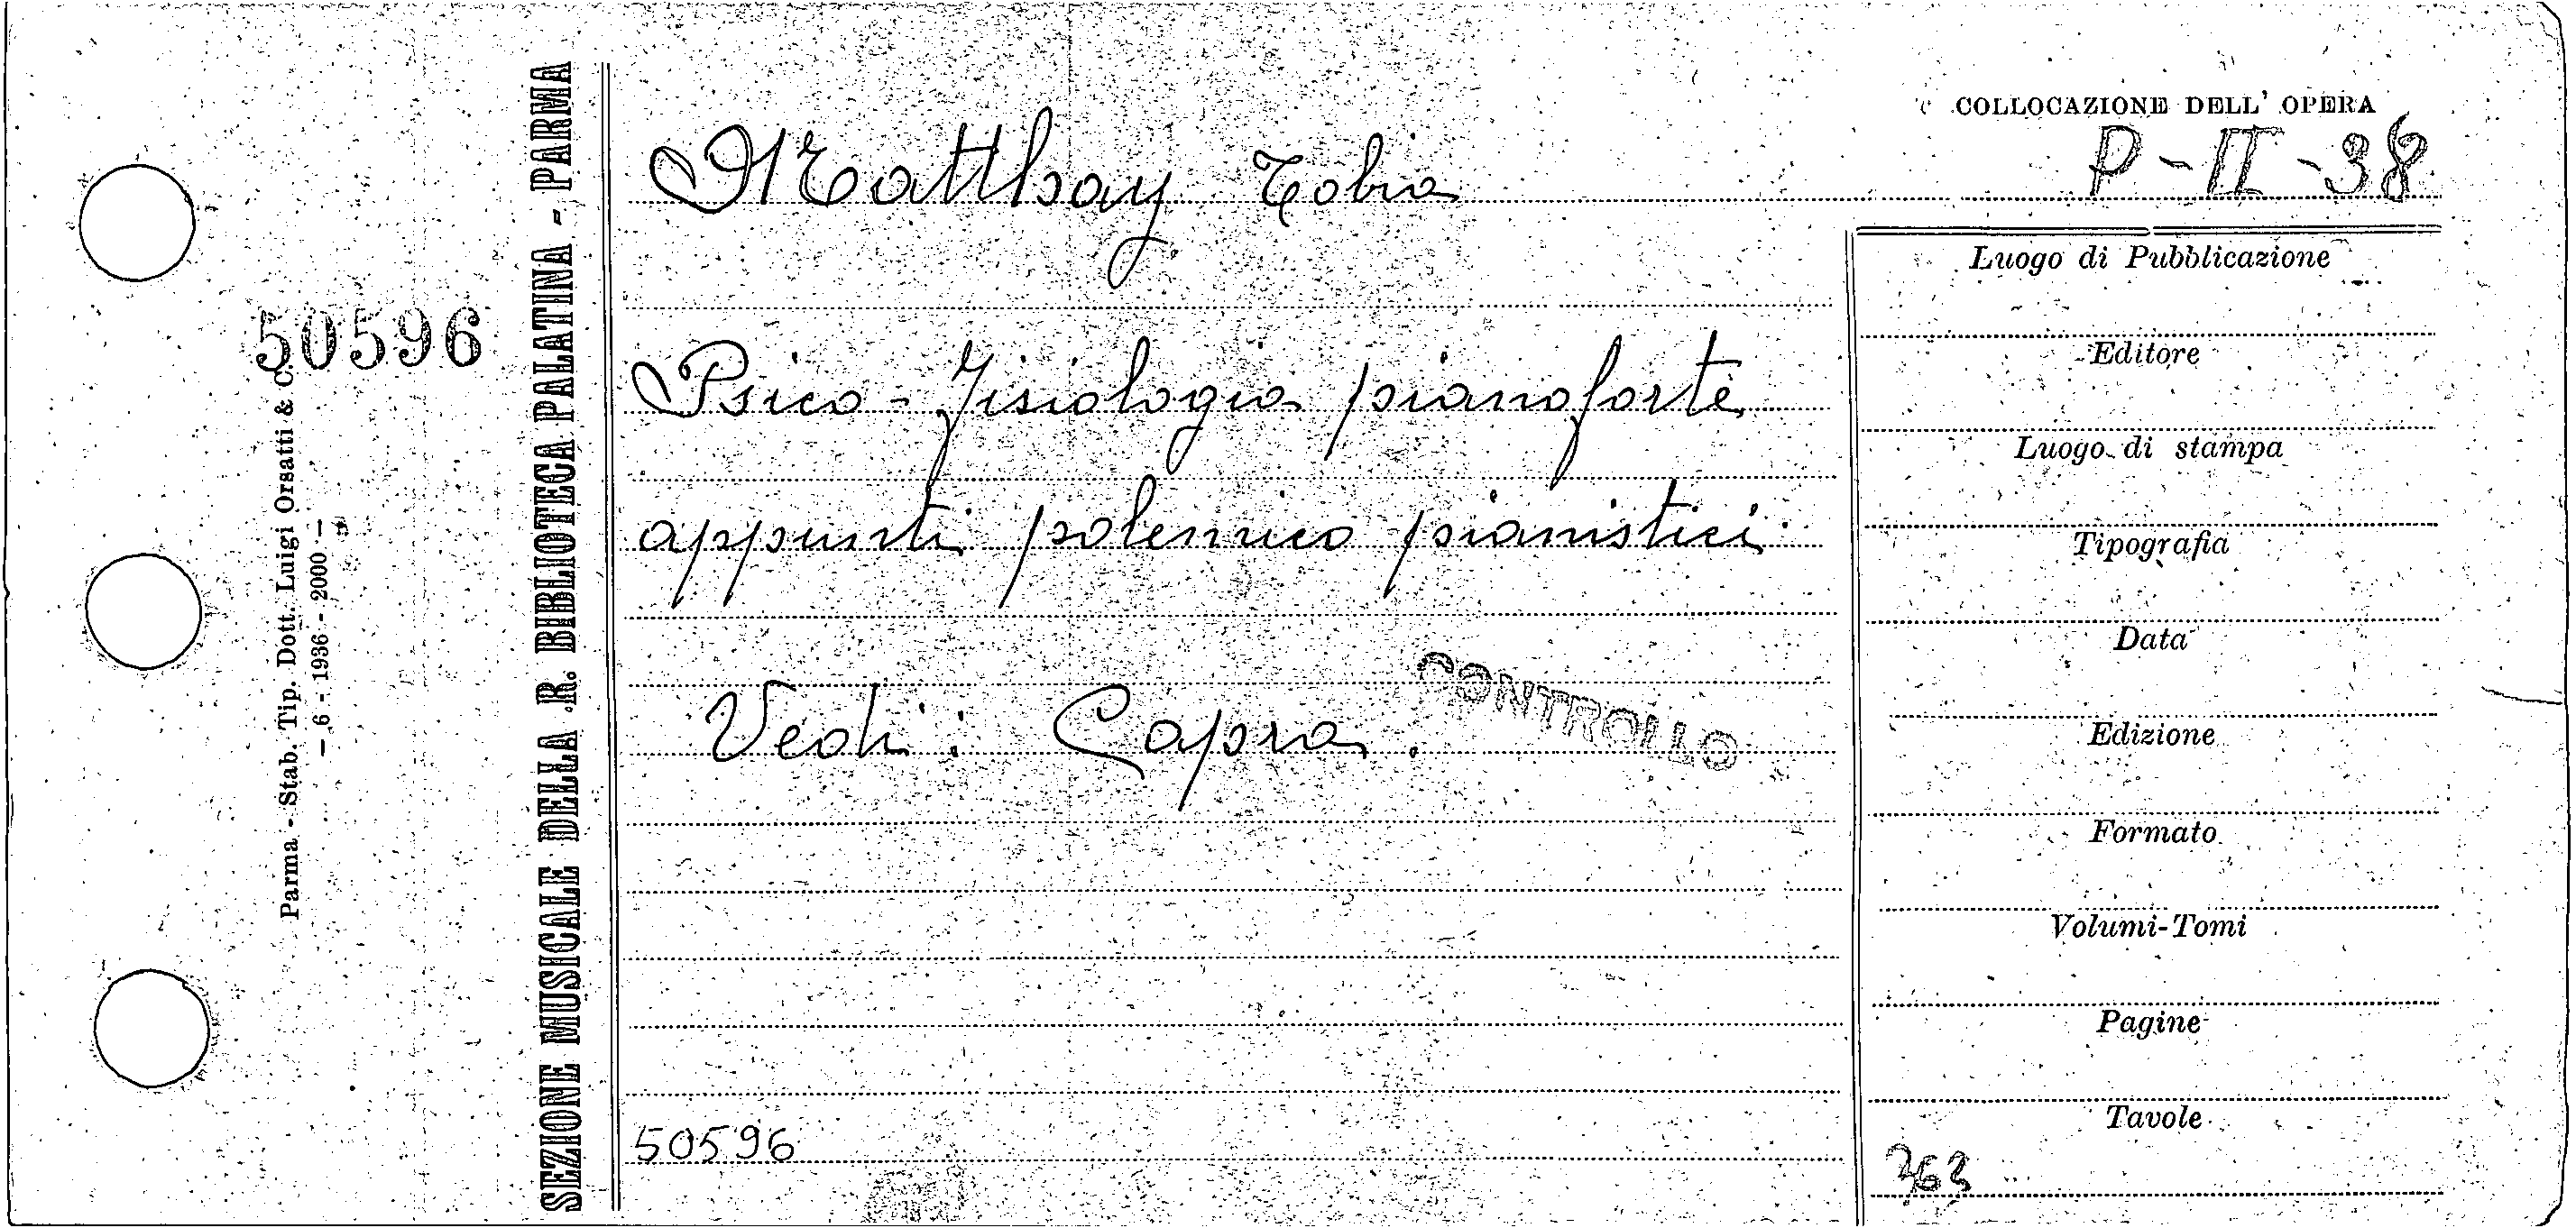 COLLOCAZIONE DELL' OPERA
P-II-38
Matthay Tobia
Psico-fisiologia pianoforte
appunti polemico pianistici
Vedi: Capra.
CONTROLLO
50596
50596
Parma - Stab. Tip. Dott. Luigi Orsatti & C.
— 6 - 1936 - 2000 —
SEZIONE MUSICALE DELLA R. BIBLIOTECA PALATINA - PARMA
Luogo di Pubblicazione
Editore
Luogo di stampa
Tipografia
Data
Edizione
Formato
Volumi-Tomi
Pagine
Tavole
263